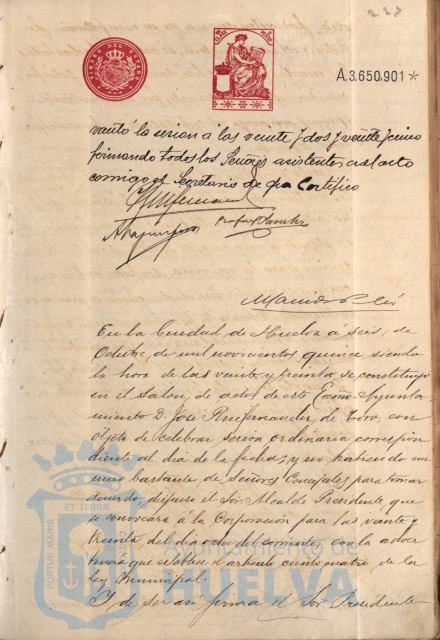 227
TIMBRE DEL ESTADO
A.3.650.901 *
vantó la sesion á las veinte y dos y veinte y cinco
firmando todos los Señores asistentes al acto
comigo el Secretario de que Certifico
En la Ciudad de Huelva á seis, de
Octubre, de mil novecientos quince siendo
la hora de las veinte y treinta se constituyo
en el salon, de actos de este Excmo Ayunta
miento D. José
objeto de celebrar sesion ordinaria correspon
diente al dia de la fecha; y no habiendo nu
mero bastante de Señores Concejales para tomar
acuerdo, dispuso el Sor Alcalde Presidente que
se convocara á la Corporacion para las veinte y
treinta del dia ocho del corriente, con la adver
tencia que establece el articulo ciento cuatro de la
ley Municipal.
Y de ser asi firma el Sor Presidente
PORTUS MARIS ET TERRÆ
Ayuntamiento de
HUELVA